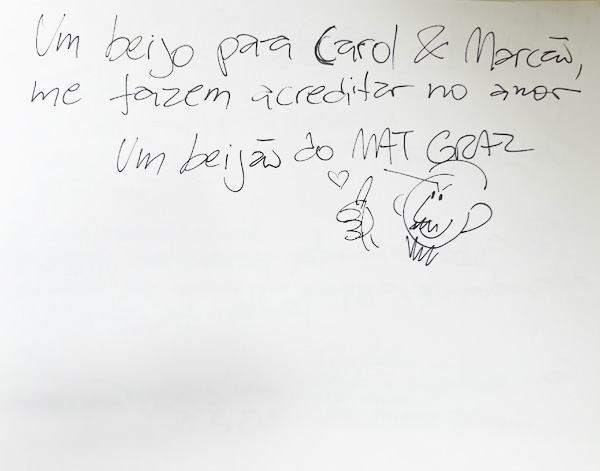 Um beijo para Carol & Marcão,
me fazem acreditar no amor
Um beijão do MAT GRAZ